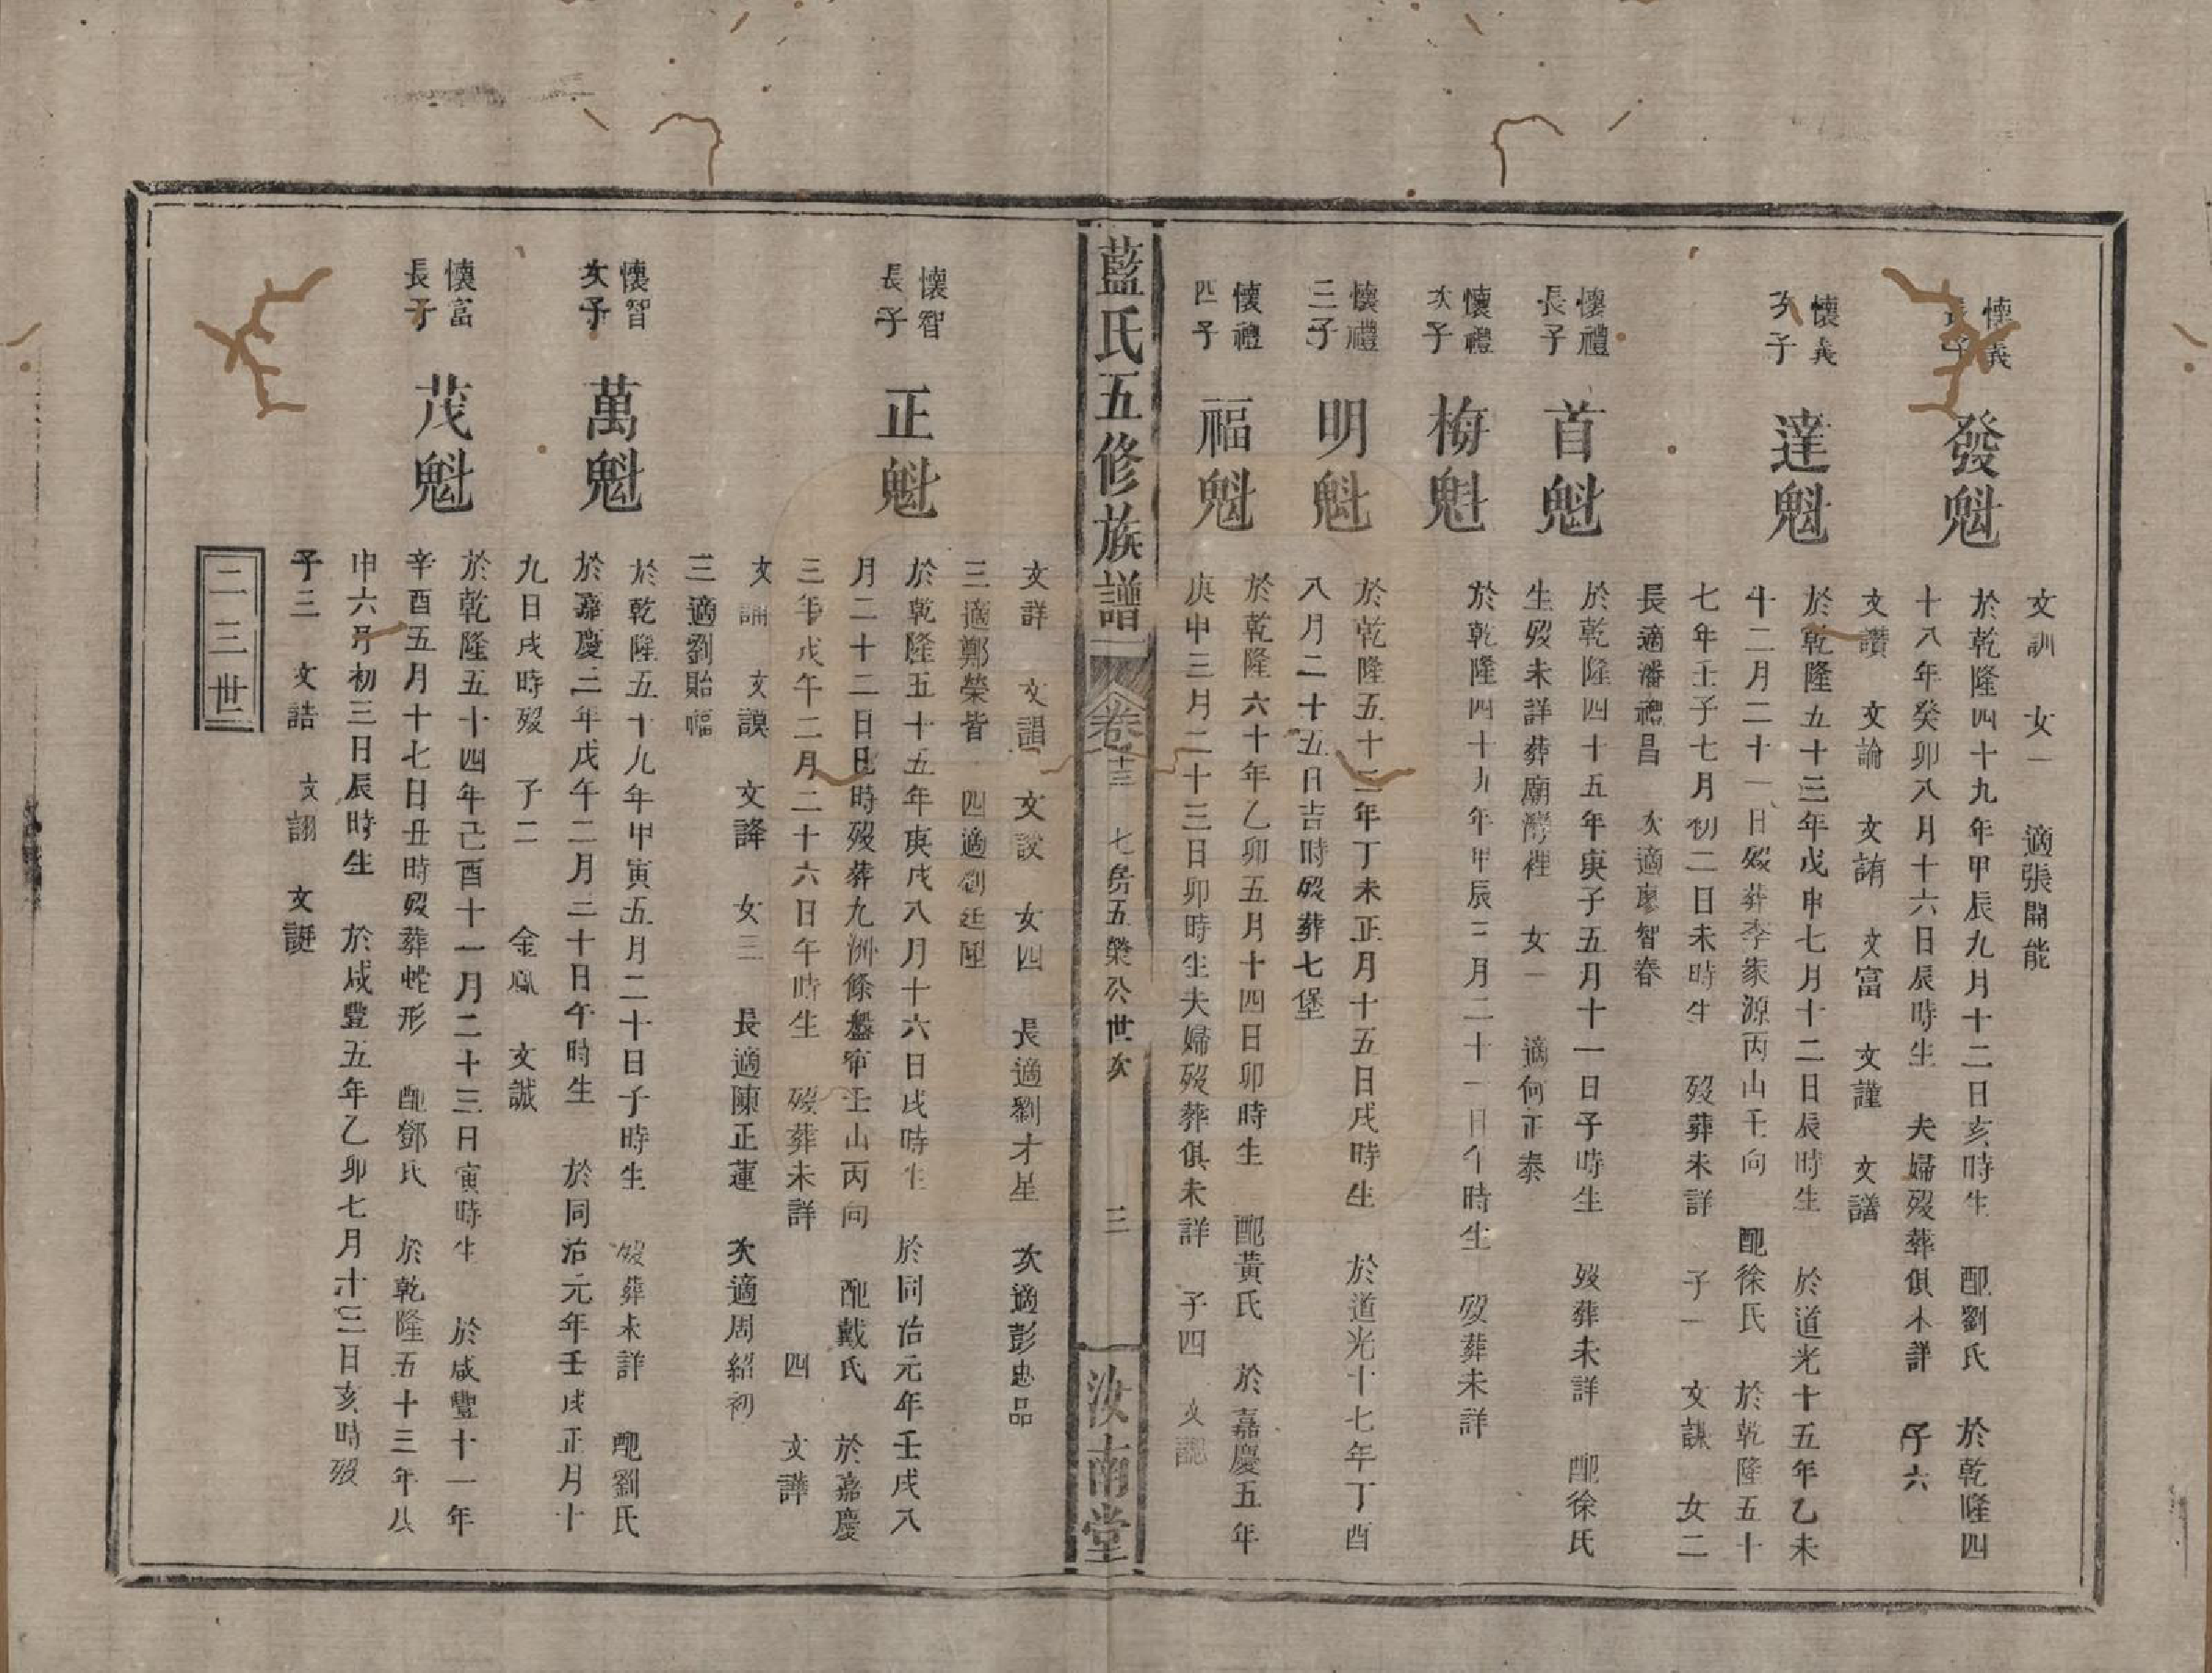 文訓　女一　適張開能
懷義長子　發魁　於乾隆四十九年甲辰九月十二日亥時生　配劉氏　於乾隆四
十八年癸卯八月十六日辰時生　夫婦歿葬俱未詳　子六
文讚　文論　文誦　文富　文謹　文譜
懷義次子　達魁　於乾隆五十三年戊申七月十二日辰時生　於道光十五年乙未
十二月二十一日歿葬李家源丙山壬向　配徐氏　於乾隆五十
七年壬子七月初二日未時生　歿葬未詳　子一　文謀　女二
長適潘禮昌　次適廖智春
懷禮長子　首魁　於乾隆四十五年庚子五月十一日子時生　歿葬未詳　配徐氏
生歿未詳葬廟灣裡　女一　適何正泰
懷禮次子　梅魁　於乾隆四十九年甲辰三月二十一日午時生　歿葬未詳
懷禮三子　明魁　於乾隆五十二年丁未正月十五日戌時生　於道光十七年丁酉
八月二十五日吉時歿葬七堡
懷禮四子　福魁　於乾隆六十年乙卯五月十四日卯時生　配黃氏　於嘉慶五年
庚申三月二十三日卯時生夫婦歿葬俱未詳　子四　文
藍氏五修族譜　卷十三　七房五榮公世次　三　汝南堂
文詳　文謂　文說　女四　長適劉才星　次適彭忠品
三適鄭榮皆　四適劉廷
懷智長子　正魁　於乾隆五十五年庚戌八月十六日戌時生　於同治元年壬戌八
月二十二日巳時歿葬九洲條盤窜壬山丙向　配戴氏　於嘉慶
三年戊午二月二十六日午時生　歿葬未詳　四　文譁
文誦　文謨　文諱　女三　長適陳正蓮　次適周紹初
三適劉貽幅
懷智次子　萬魁　於乾隆五十九年甲寅五月二十日子時生　歿葬未詳　配劉氏
於嘉慶三年戊午二月三十日午時生　於同治元年壬戌正月十
九日戌時歿　子二　金鳳　文誠
懷富長子　茂魁　於乾隆五十四年己酉十一月二十三日寅時生　於咸豐十一年
辛酉五月十七日丑時歿葬蛇形　配鄧氏　於乾隆五十三年戊
申六月初三日辰時生　於咸豐五年乙卯七月十三日亥時歿
子三　文誥　文詡　文誕
二三世